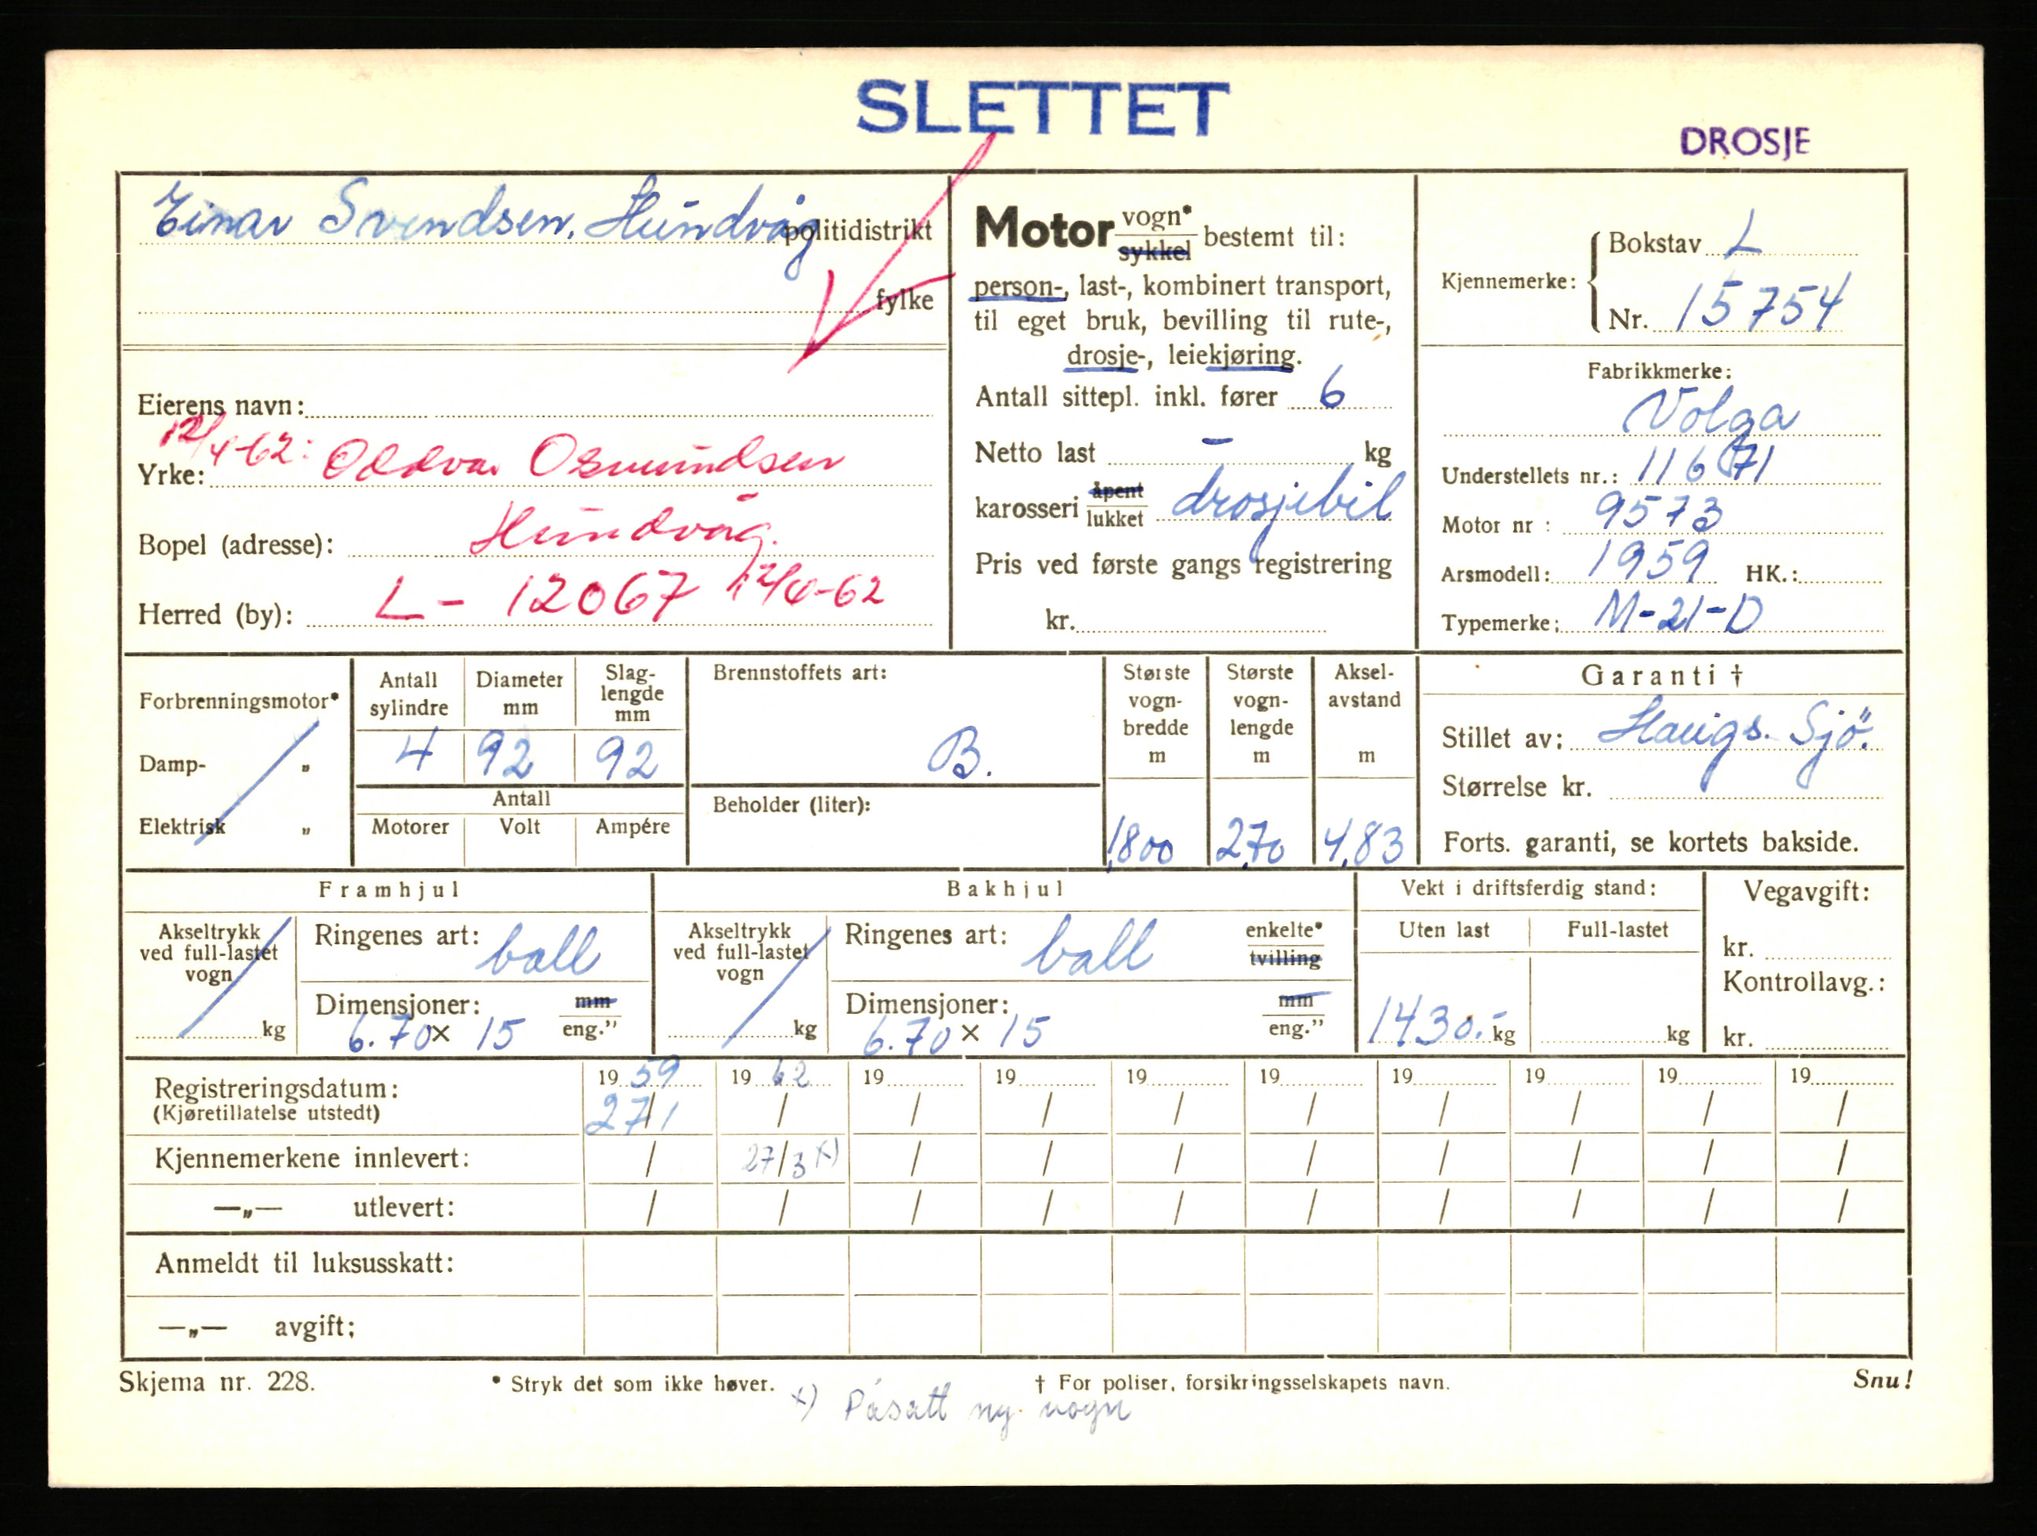 SLETTET
DROSJE
Einar Svendsen, Hundvåg politidistrikt
fylke
Eierens navn:
12/4-62: Oddvar Osmundsen
Yrke:
Bopel (adresse): Hundvåg.
Herred (by): L - 12067 12/4-62
Motor vogn* sykkel bestemt til:
person-, last-, kombinert transport,
til eget bruk, bevilling til rute-,
drosje-, leiekjøring.
Antall sittepl. inkl. fører 6
Netto last - kg
karosseri åpent lukket drosjebil
Pris ved første gangs registrering
kr.
Kjennemerke: { Bokstav L
Nr. 15754
Fabrikkmerke:
Volga
Understellets nr.: 116071
Motor nr : 9573
Arsmodell: 1959 HK.:
Typemerke: M-21-D
Forbrenningsmotor*
Damp- „
Elektrisk „
Antall sylindre
Diameter mm
Slag-lengde mm
4 92 92
Antall
Motorer Volt Ampére
Brennstoffets art:
B.
Beholder (liter):
Største vogn-bredde m
1,800
Største vogn-lengde m
2,70
Aksel-avstand m
4,83
Garanti †
Stillet av: Haugs. Sjö.
Størrelse kr.
Forts. garanti, se kortets bakside.
Framhjul
Akseltrykk ved full-lastet vogn
kg
Ringenes art: ball
Dimensjoner: mm
6.70 x 15 eng."
Bakhjul
Akseltrykk ved full-lastet vogn
kg
Ringenes art: ball enkelte* tvilling
Dimensjoner: mm
6.70 x 15 eng."
Vekt i driftsferdig stand:
Uten last Full-lastet
1430.- kg kg
Vegavgift:
kr.
Kontrollavg.:
kr.
Registreringsdatum: 19 59 19 62 19 19 19 19 19 19 19 19
(Kjøretillatelse utstedt) 27/1 / / / / / / / / /
Kjennemerkene innlevert: / 27/3 x) / / / / / / / /
—„— utlevert: / / / / / / / / / /
Anmeldt til luksusskatt:
—„— avgift:
Skjema nr. 228. * Stryk det som ikke høver. † For poliser, forsikringsselskapets navn. Snu!
x) Påsatt ny vogn